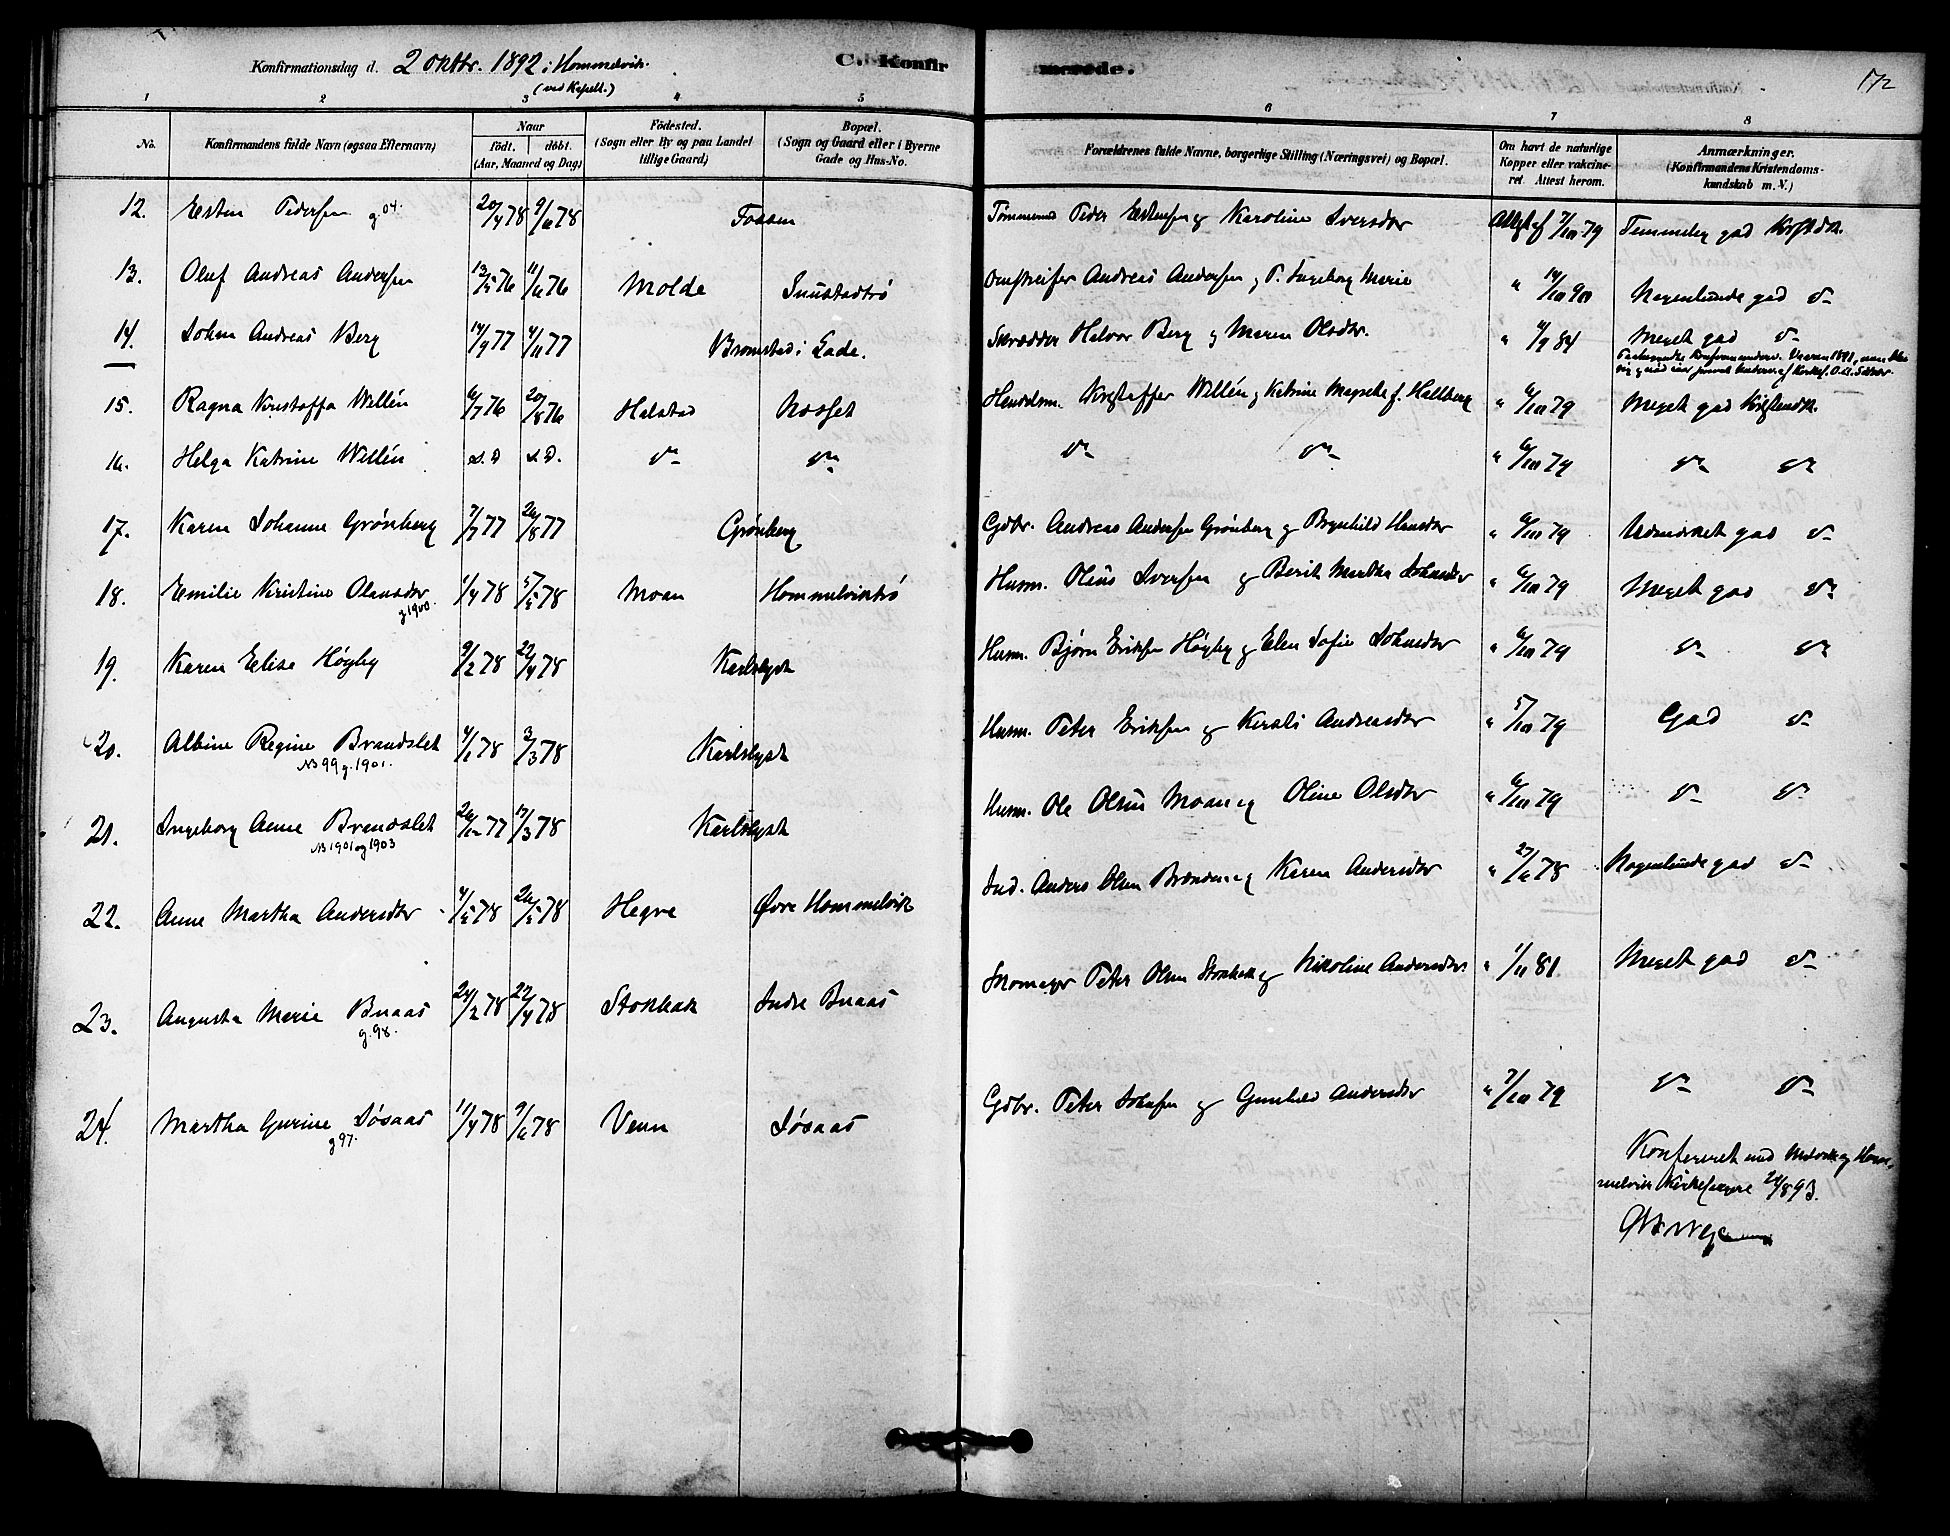 Konfirmationsdag d. 2 oktbr. 1892 i Hommelvik.
(ved Kapell.)
C. Konfirmerede.
172
1 2 3 4 5 6 7 8
No.
Konfirmandens fulde Navn (ogsaa Efternavn)
Naar
født. døbt.
(Aar, Maaned og Dag)
Fødested.
(Sogn eller By og paa Landet
tillige Gaard)
Bopæl.
(Sogn og Gaard eller i Byerne
Gade og Hus-No.
Forældrenes fulde Navne, borgerlige Stilling (Næringsvei) og Bopæl.
Om havt de naturlige
Kopper eller vakcine-
ret. Attest herom.
Anmærkninger.
(Konfirmandens Kristendoms-
kundskab m. V.)
12. Esten Pedersen g. 04. 20/4 78 9/6 78 Fossen Peder Estensen og Karoline Iversdtr 7/10 79 Temmelig god
13. Oluf Andreas Andersen 13/5 76 11/6 76 Molde Omstreifer Andreas Andersen og Ingeborg Marie " 14/10 90 Nogenlunde god d-
14. Johan Andreas Berg 14/9 77 4/11 77 Bromstad i Lade. Skrædder Halvor Berg og Maren Olsdtr. " 84 Meget god d-
15. Ragna Kristoffa Wellén 6/7 76 20/8 76 Halstad Handelsm. Kristoffer Wellén og Katrine f. Hallberg " 6/10 79 Meget god
16. Helga Katrine Wellén s. D. s. D. d- d- d- d- " 6/10 79 d- d-
17. Karen Johanne Grönberg 7/7 77 26/8 77 Grönberg Gdbr. Andreas Andersen Grönberg og Brynhild Hansdtr " 6/10 79 Udmærket god d-
18. Emilie Kristine Olausdtr g 1900. 1/4 78 5/5 78 Moan Husm. Olaus Iversen og Berit Martha Johnsdtr " 6/10 79 Meget god d-
19. Karen Elise Høgby 9/2 78 22/4 78 Karlslyst Husm. Bjørn Eriksen Høgby og Elen Sofie Johnsdtr " 6/10 79 d- d-
20. Albine Regine Brandslet 4/1 78 3/3 78 Karlslyst Husm. Peter Eriksen og Kirsti Andreasdtr " 5/10 79 God d-
NB 99 g. 1901.
21. Ingeborg Anne Brandslet 26/12 77 17/3 78 Karlslyst Husm. Ole Olsen Moan og Oline Olsdtr " 6/10 79 d- d-
NB 1901 og 1903
22. Anne Martha Andersdtr 4/5 78 26/5 78 Hegre Øvre Hommelvik Ind. Anders Olsen og Karen Andersdtr " 27/6 78 Nogenlunde god d-
23. Augusta Marie Buaas g. 98. 24/2 78 22/4 78 Stokkak Indre Buaas Skomager Peter Olsen og Nikoline Andersdtr " 1/11 81 Meget god d-
24. Martha Gurine Jøsaas g 97. 11/4 78 9/6 78 Venn Jøsaas Gdbr. Peter Johnsen og Gunhild Andersdtr " 7/10 79 d- d-
Konfereret med og Hom-
melvik